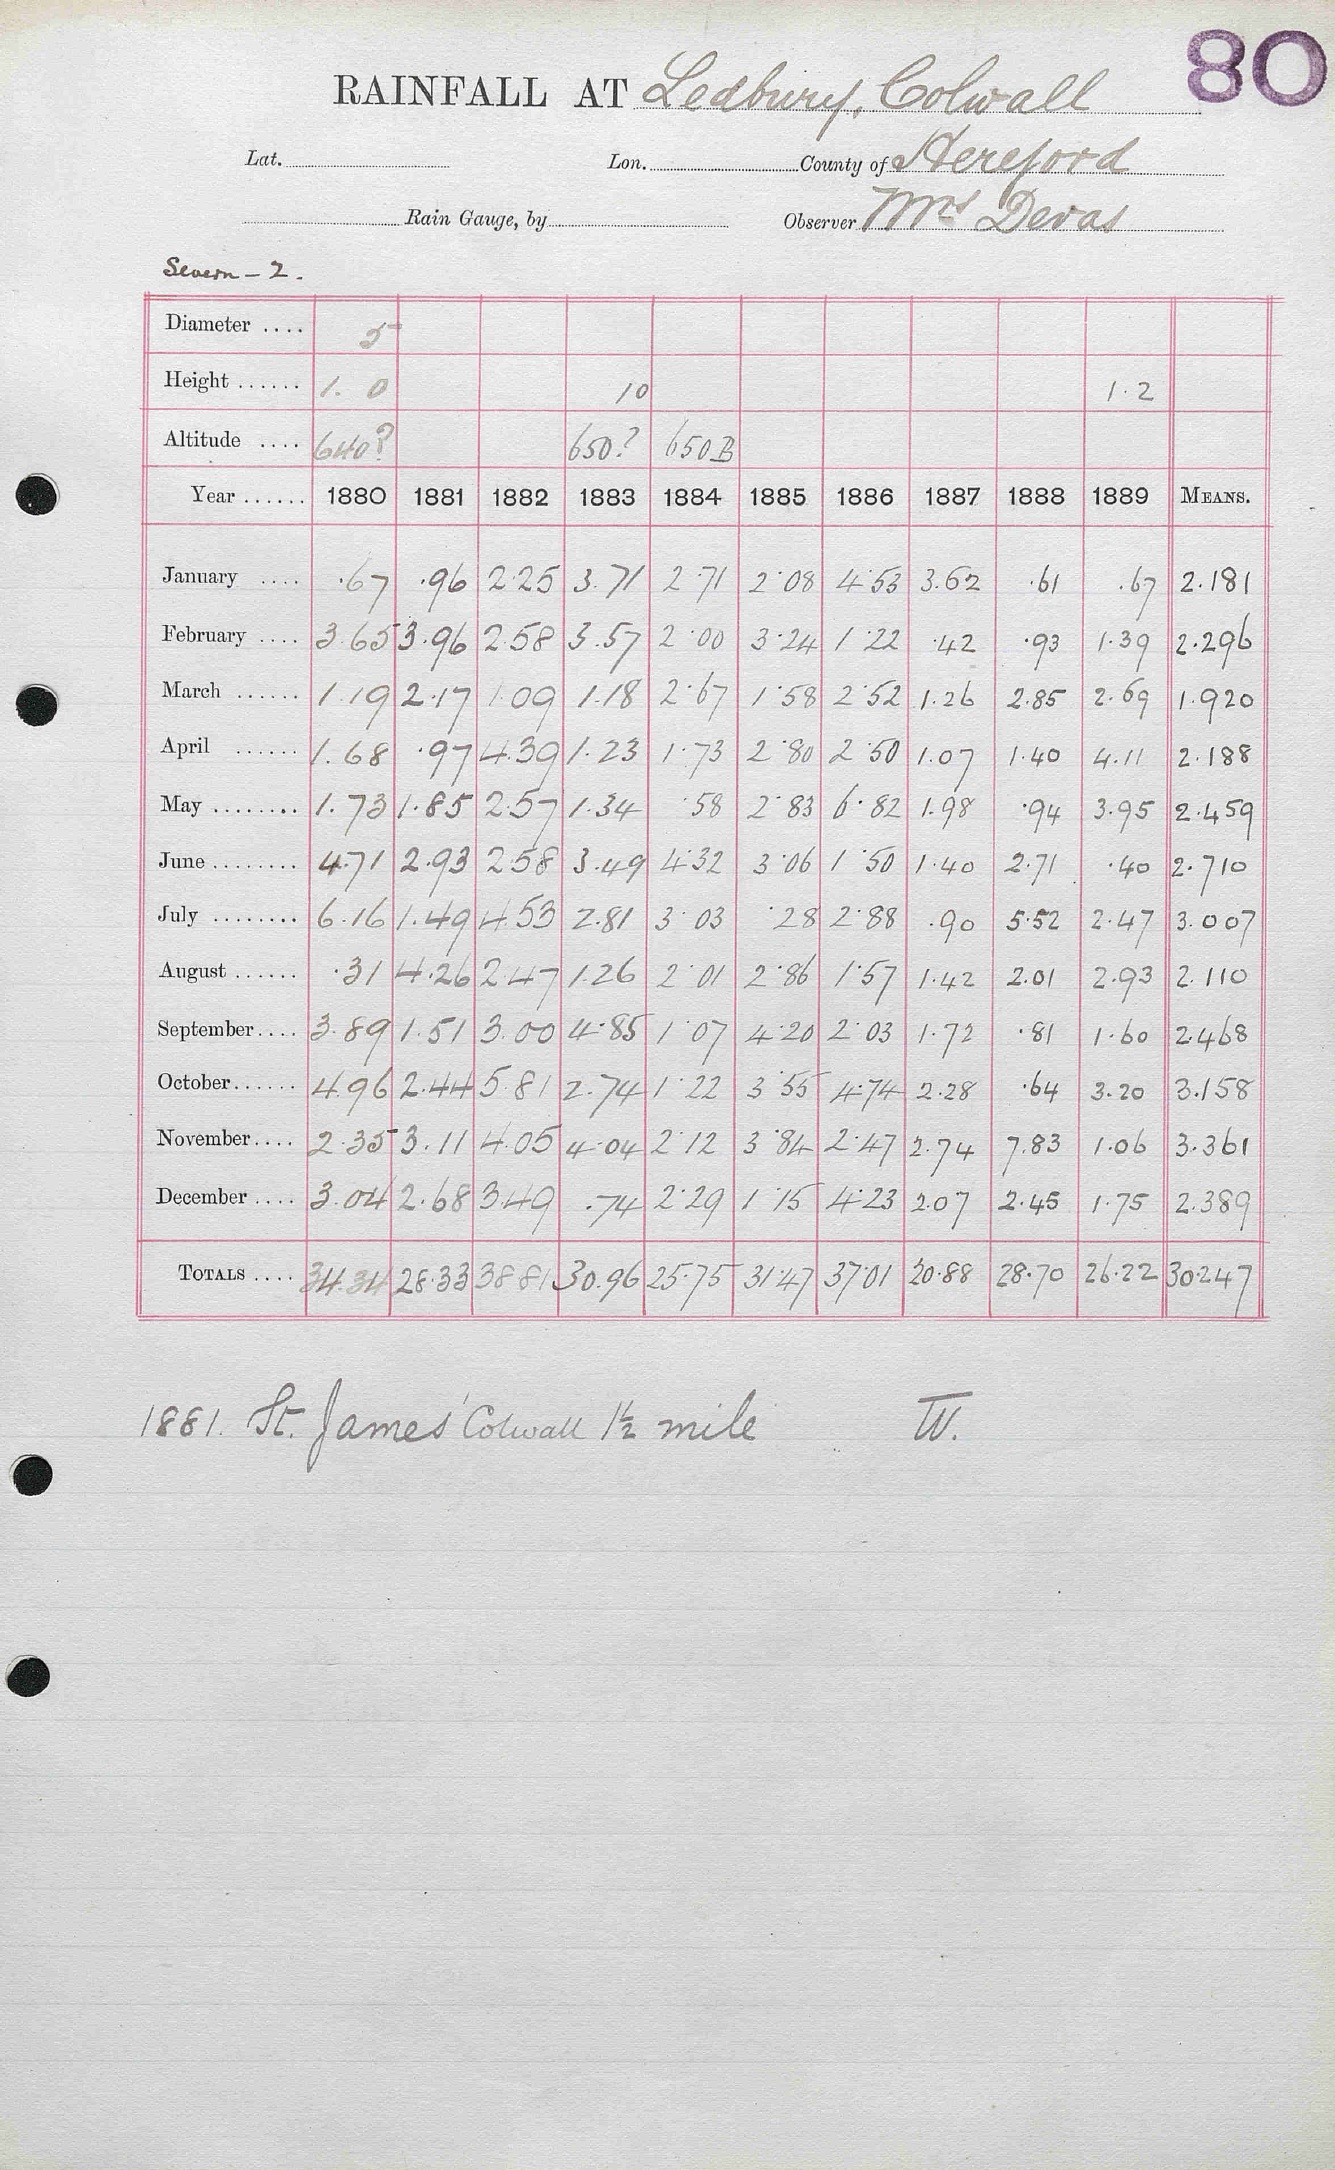 80
RAINFALL AT Ledbury, Colwall
Lat. Lon. County of Hereford
Rain Gauge, by Observer Mrs Devas
Severn - 2.
Diameter .... 5
Height ...... 1. 0 10 1.2
Altitude .... 640? 650? 650B
Year ...... 1880 1881 1882 1883 1884 1885 1886 1887 1888 1889 MEANS.
January .... .67 .96 2.25 3.71 2.71 2.08 4.53 3.62 .61 .67 2.181
February .... 3.65 3.96 2.58 3.57 2.00 3.24 1.22 .42 .93 1.39 2.296
March ...... 1.19 2.17 1.09 1.18 2.67 1.58 2.52 1.26 2.85 2.69 1.920
April ...... 1.68 .97 4.39 1.23 1.73 2.80 2.50 1.07 1.40 4.11 2.188
May ........ 1.73 1.85 2.57 1.34 .58 2.83 6.82 1.98 .94 3.95 2.459
June ........ 4.71 2.93 2.58 3.49 4.32 3.06 1.50 1.40 2.71 .40 2.710
July ........ 6.16 1.49 4.53 2.81 3.03 .28 2.88 .90 5.52 2.47 3.007
August ...... .31 4.26 2.47 1.26 2.01 2.86 1.57 1.42 2.01 2.93 2.110
September.... 3.89 1.51 3.00 4.85 1.07 4.20 2.03 1.72 .81 1.60 2.468
October...... 4.96 2.44 5.81 2.74 1.22 3.55 4.74 2.28 .64 3.20 3.158
November.... 2.35 3.11 4.05 4.04 2.12 3.84 2.47 2.74 7.83 1.06 3.361
December .... 3.04 2.68 3.49 .74 2.29 1.15 4.23 2.07 2.45 1.75 2.389
TOTALS .... 34.34 28.33 38.81 30.96 25.75 31.47 37.01 20.88 28.70 26.22 30.247
1881. St. James' Colwall 1½ mile W.